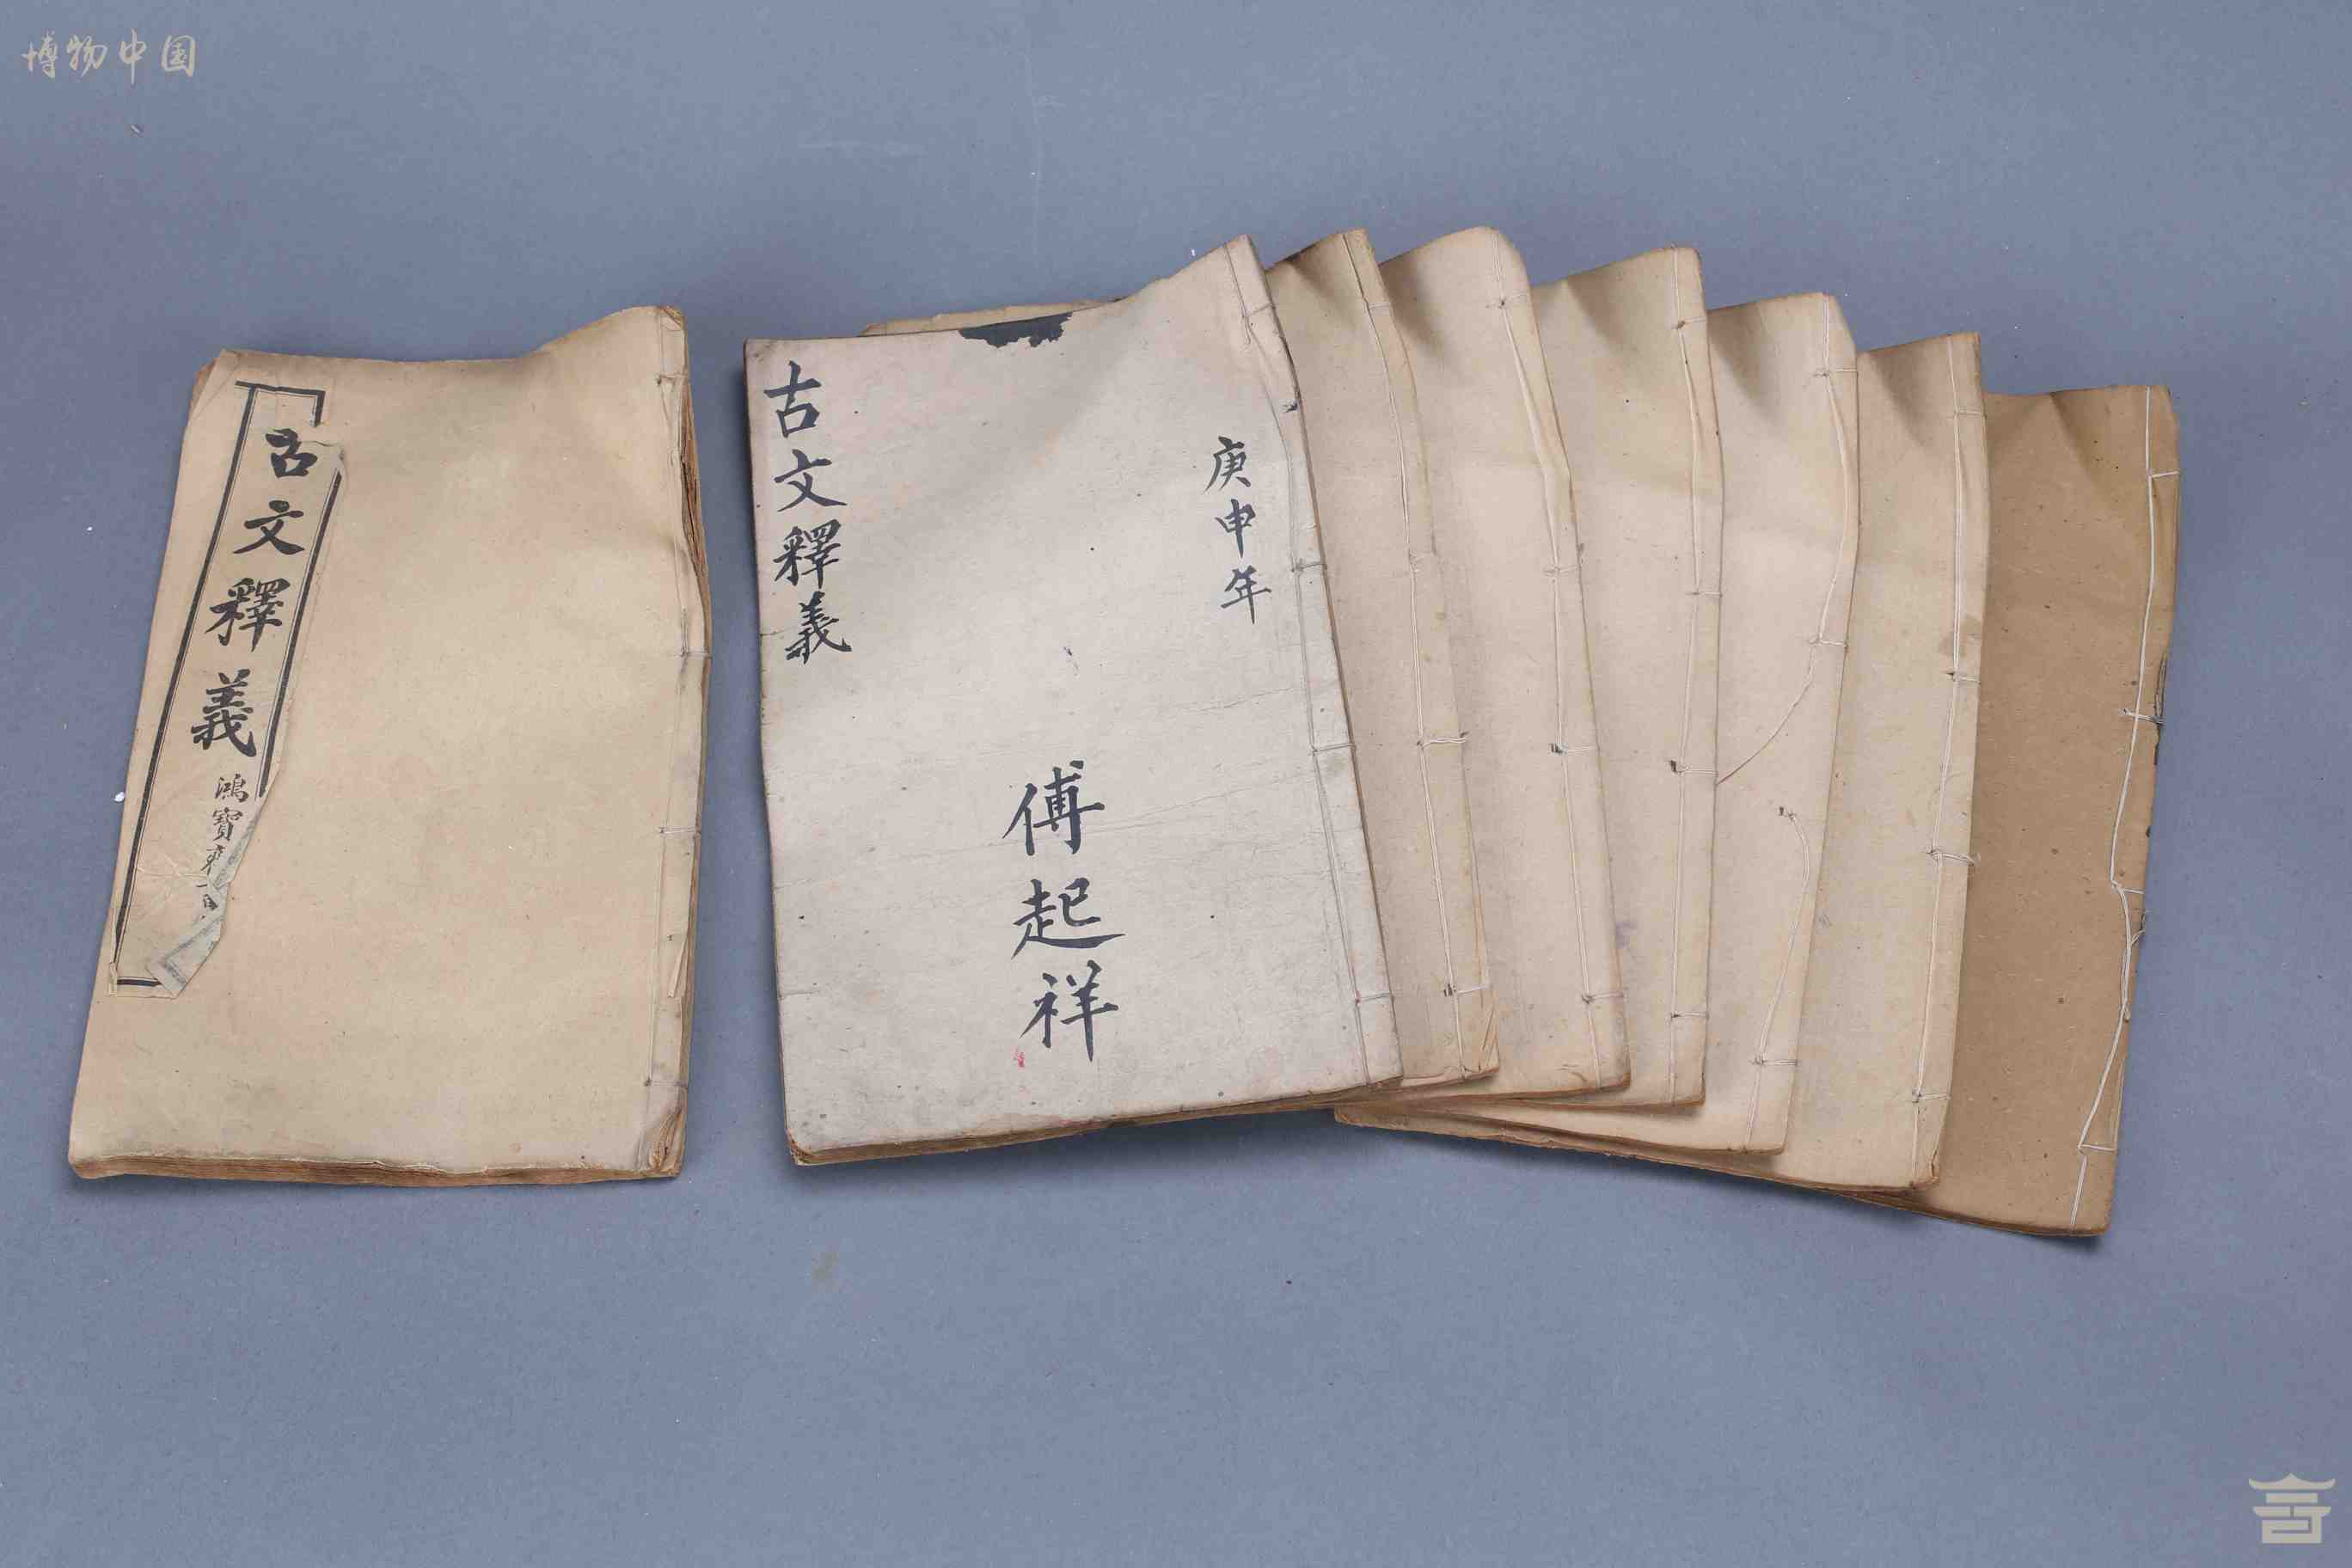 博物中国
古文釋義
鴻寶
庚申年
古文釋義
傅起祥